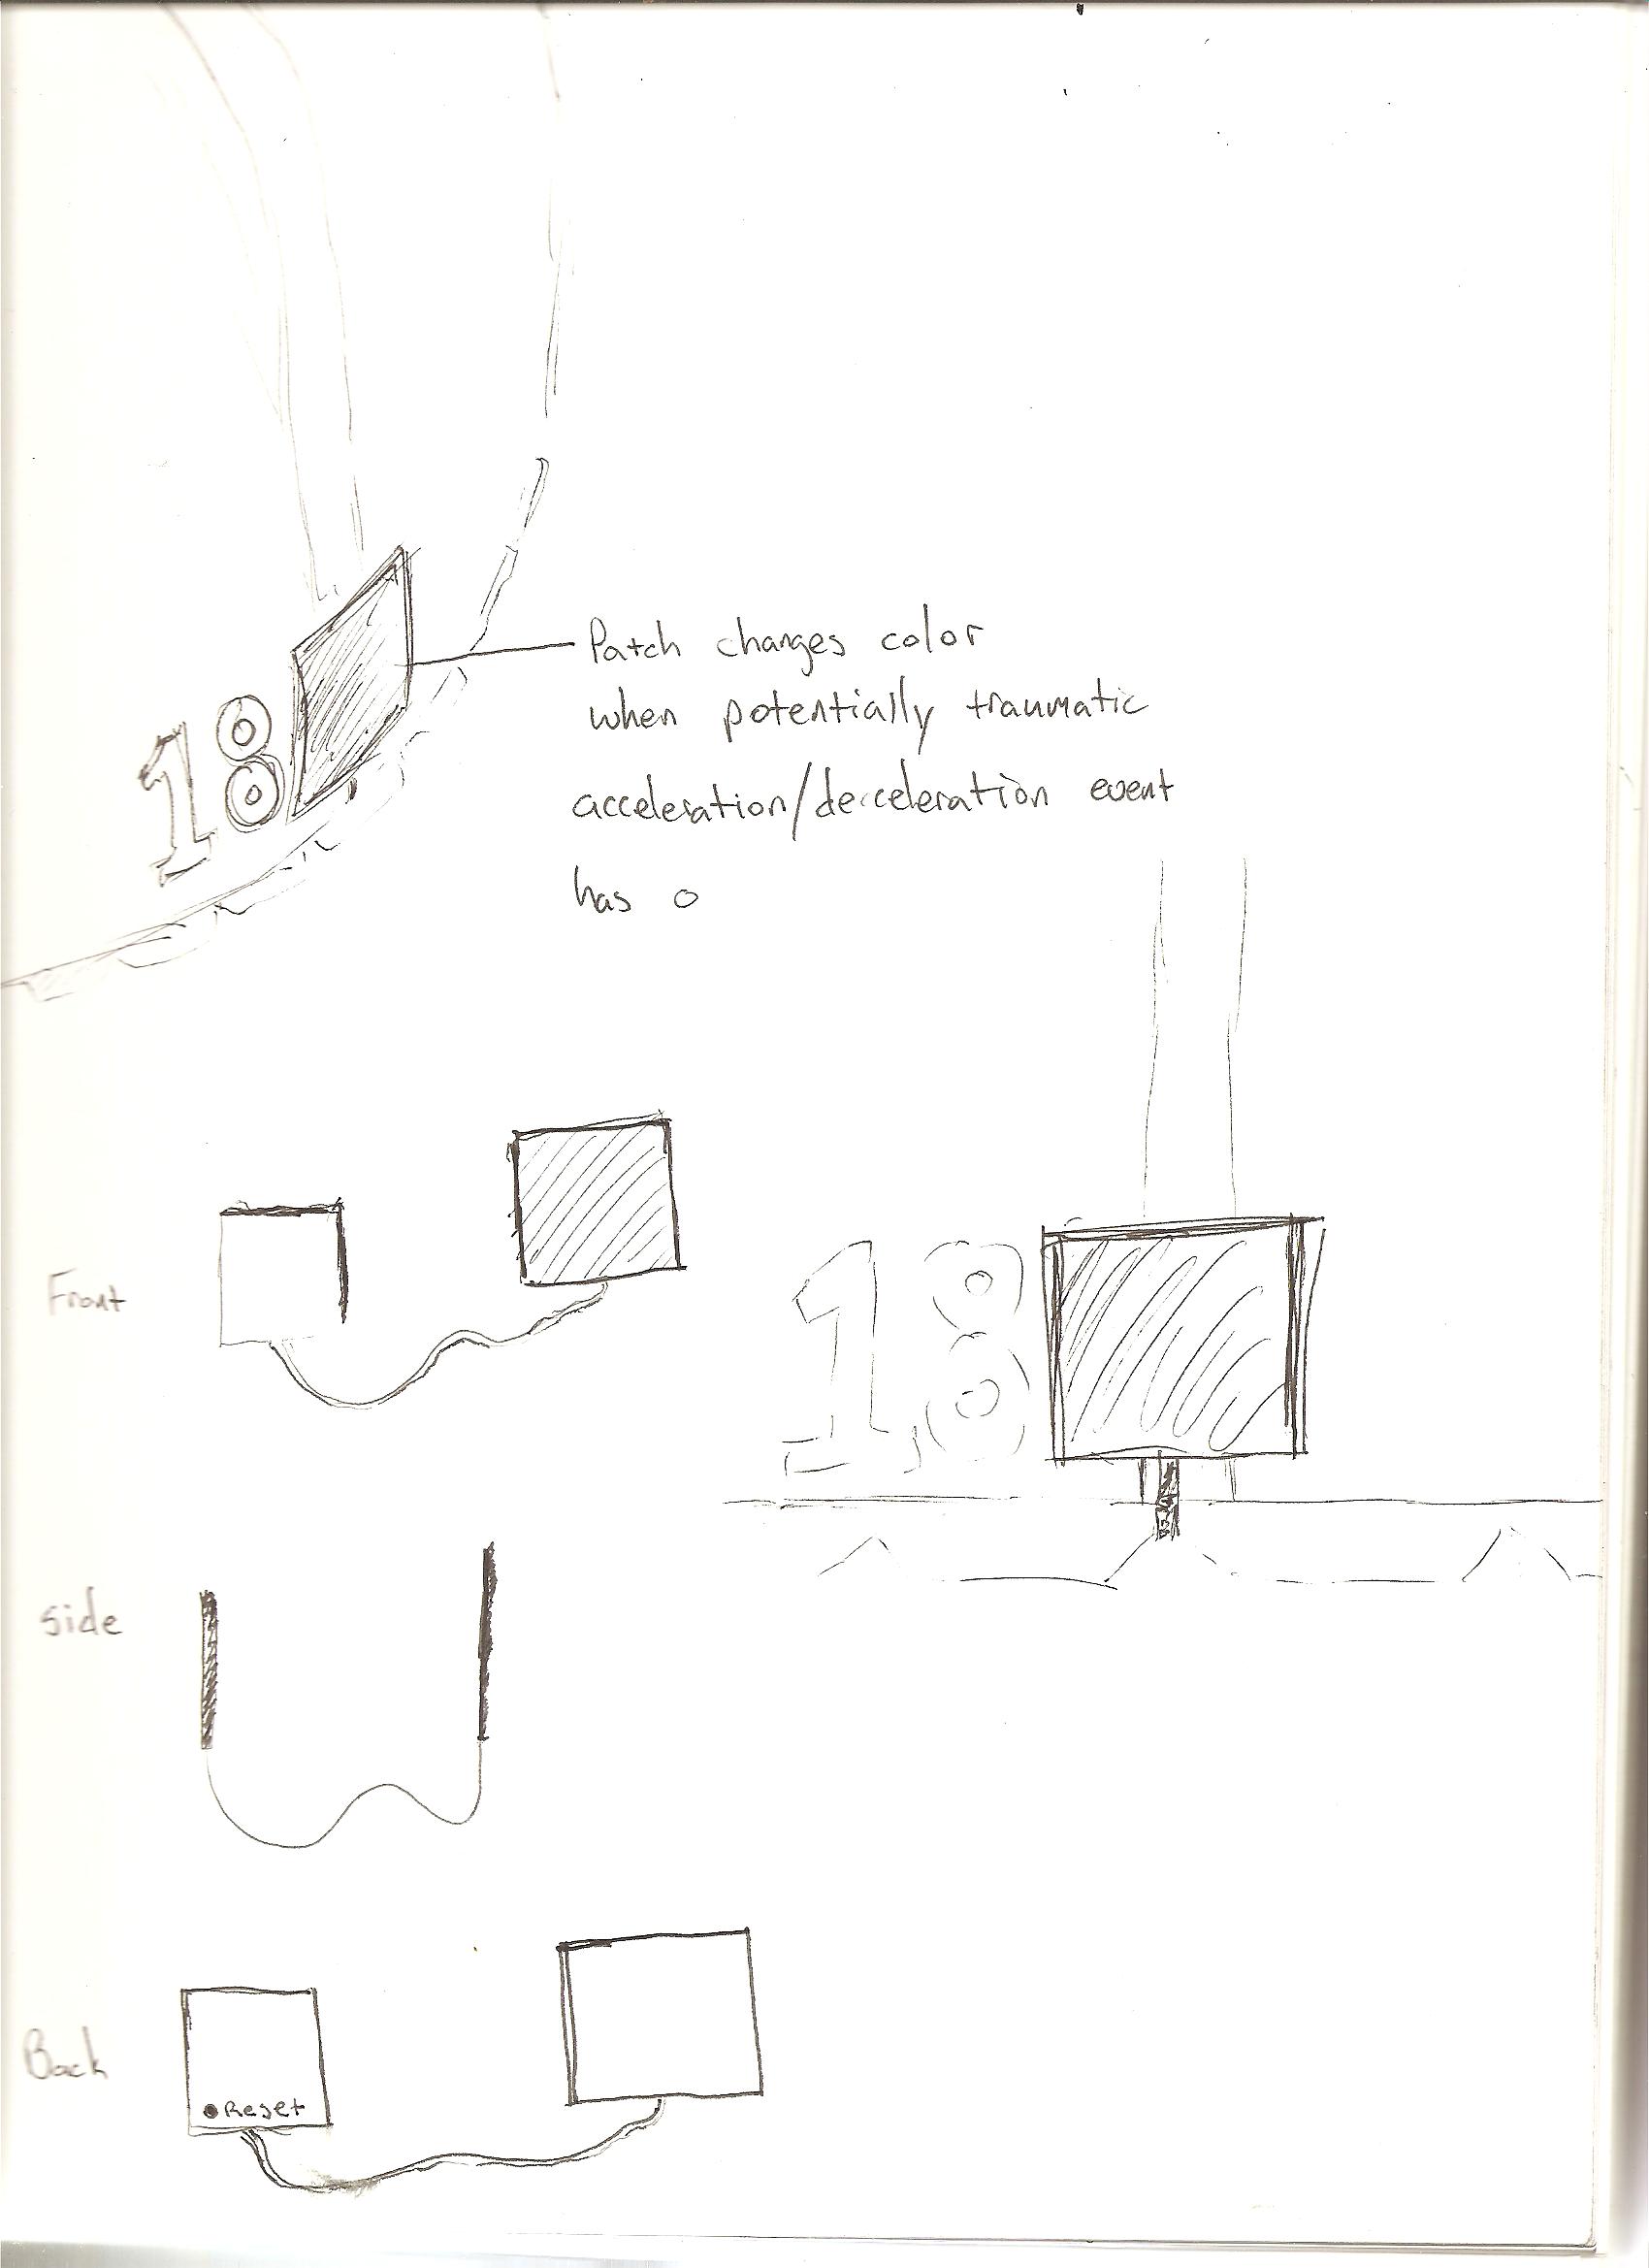 18
Patch changes color
when potentially traumatic
acceleration/decceleration event
has o
Front
18
Side
Back
Reset